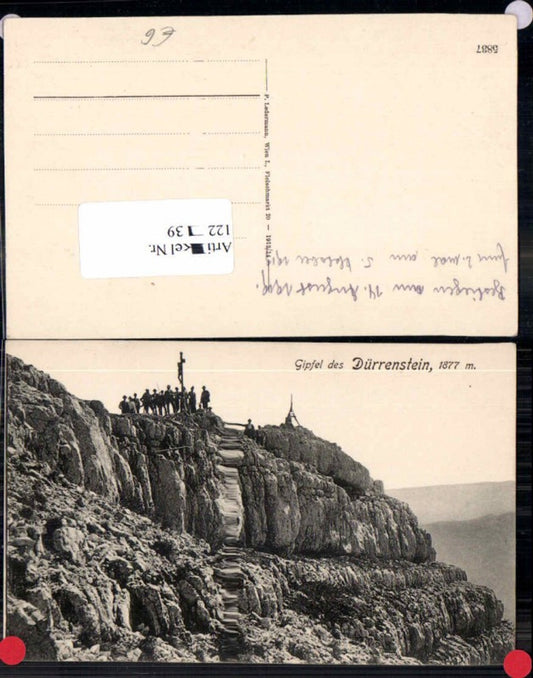 66
5887
P. Ledermann, Wien I., Fleischmarkt 20 — 1913/14
Artikel Nr.
122 39
am 14. August 19
2. Mal am 5.
Gipfel des Dürrenstein, 1877 m.